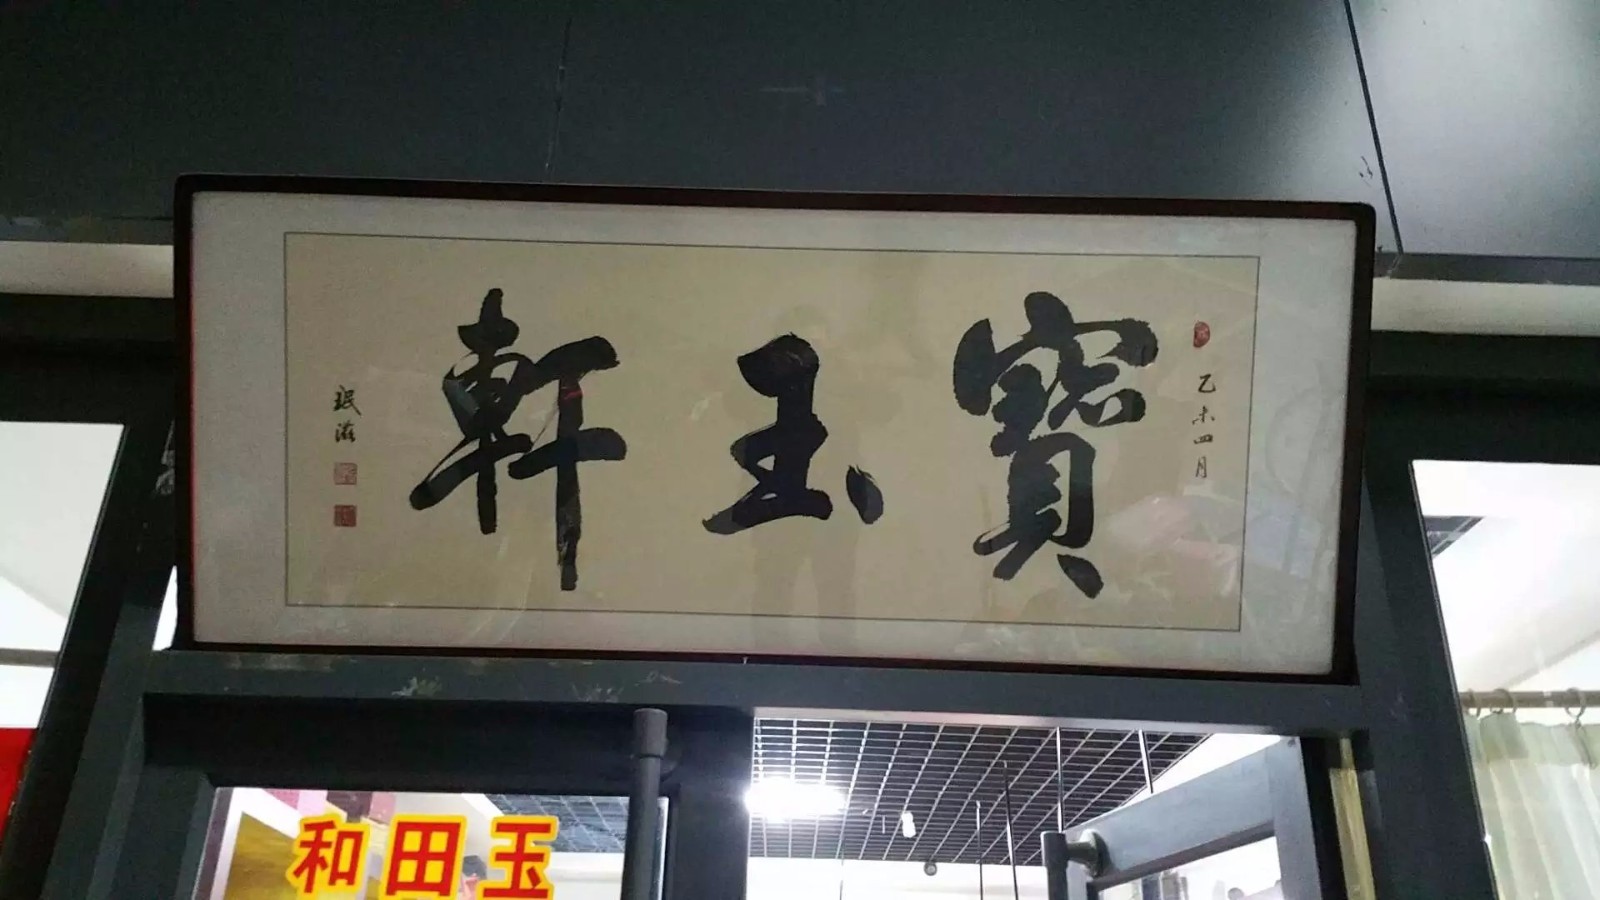 乙未四月
寶玉軒
珉滋
和田玉